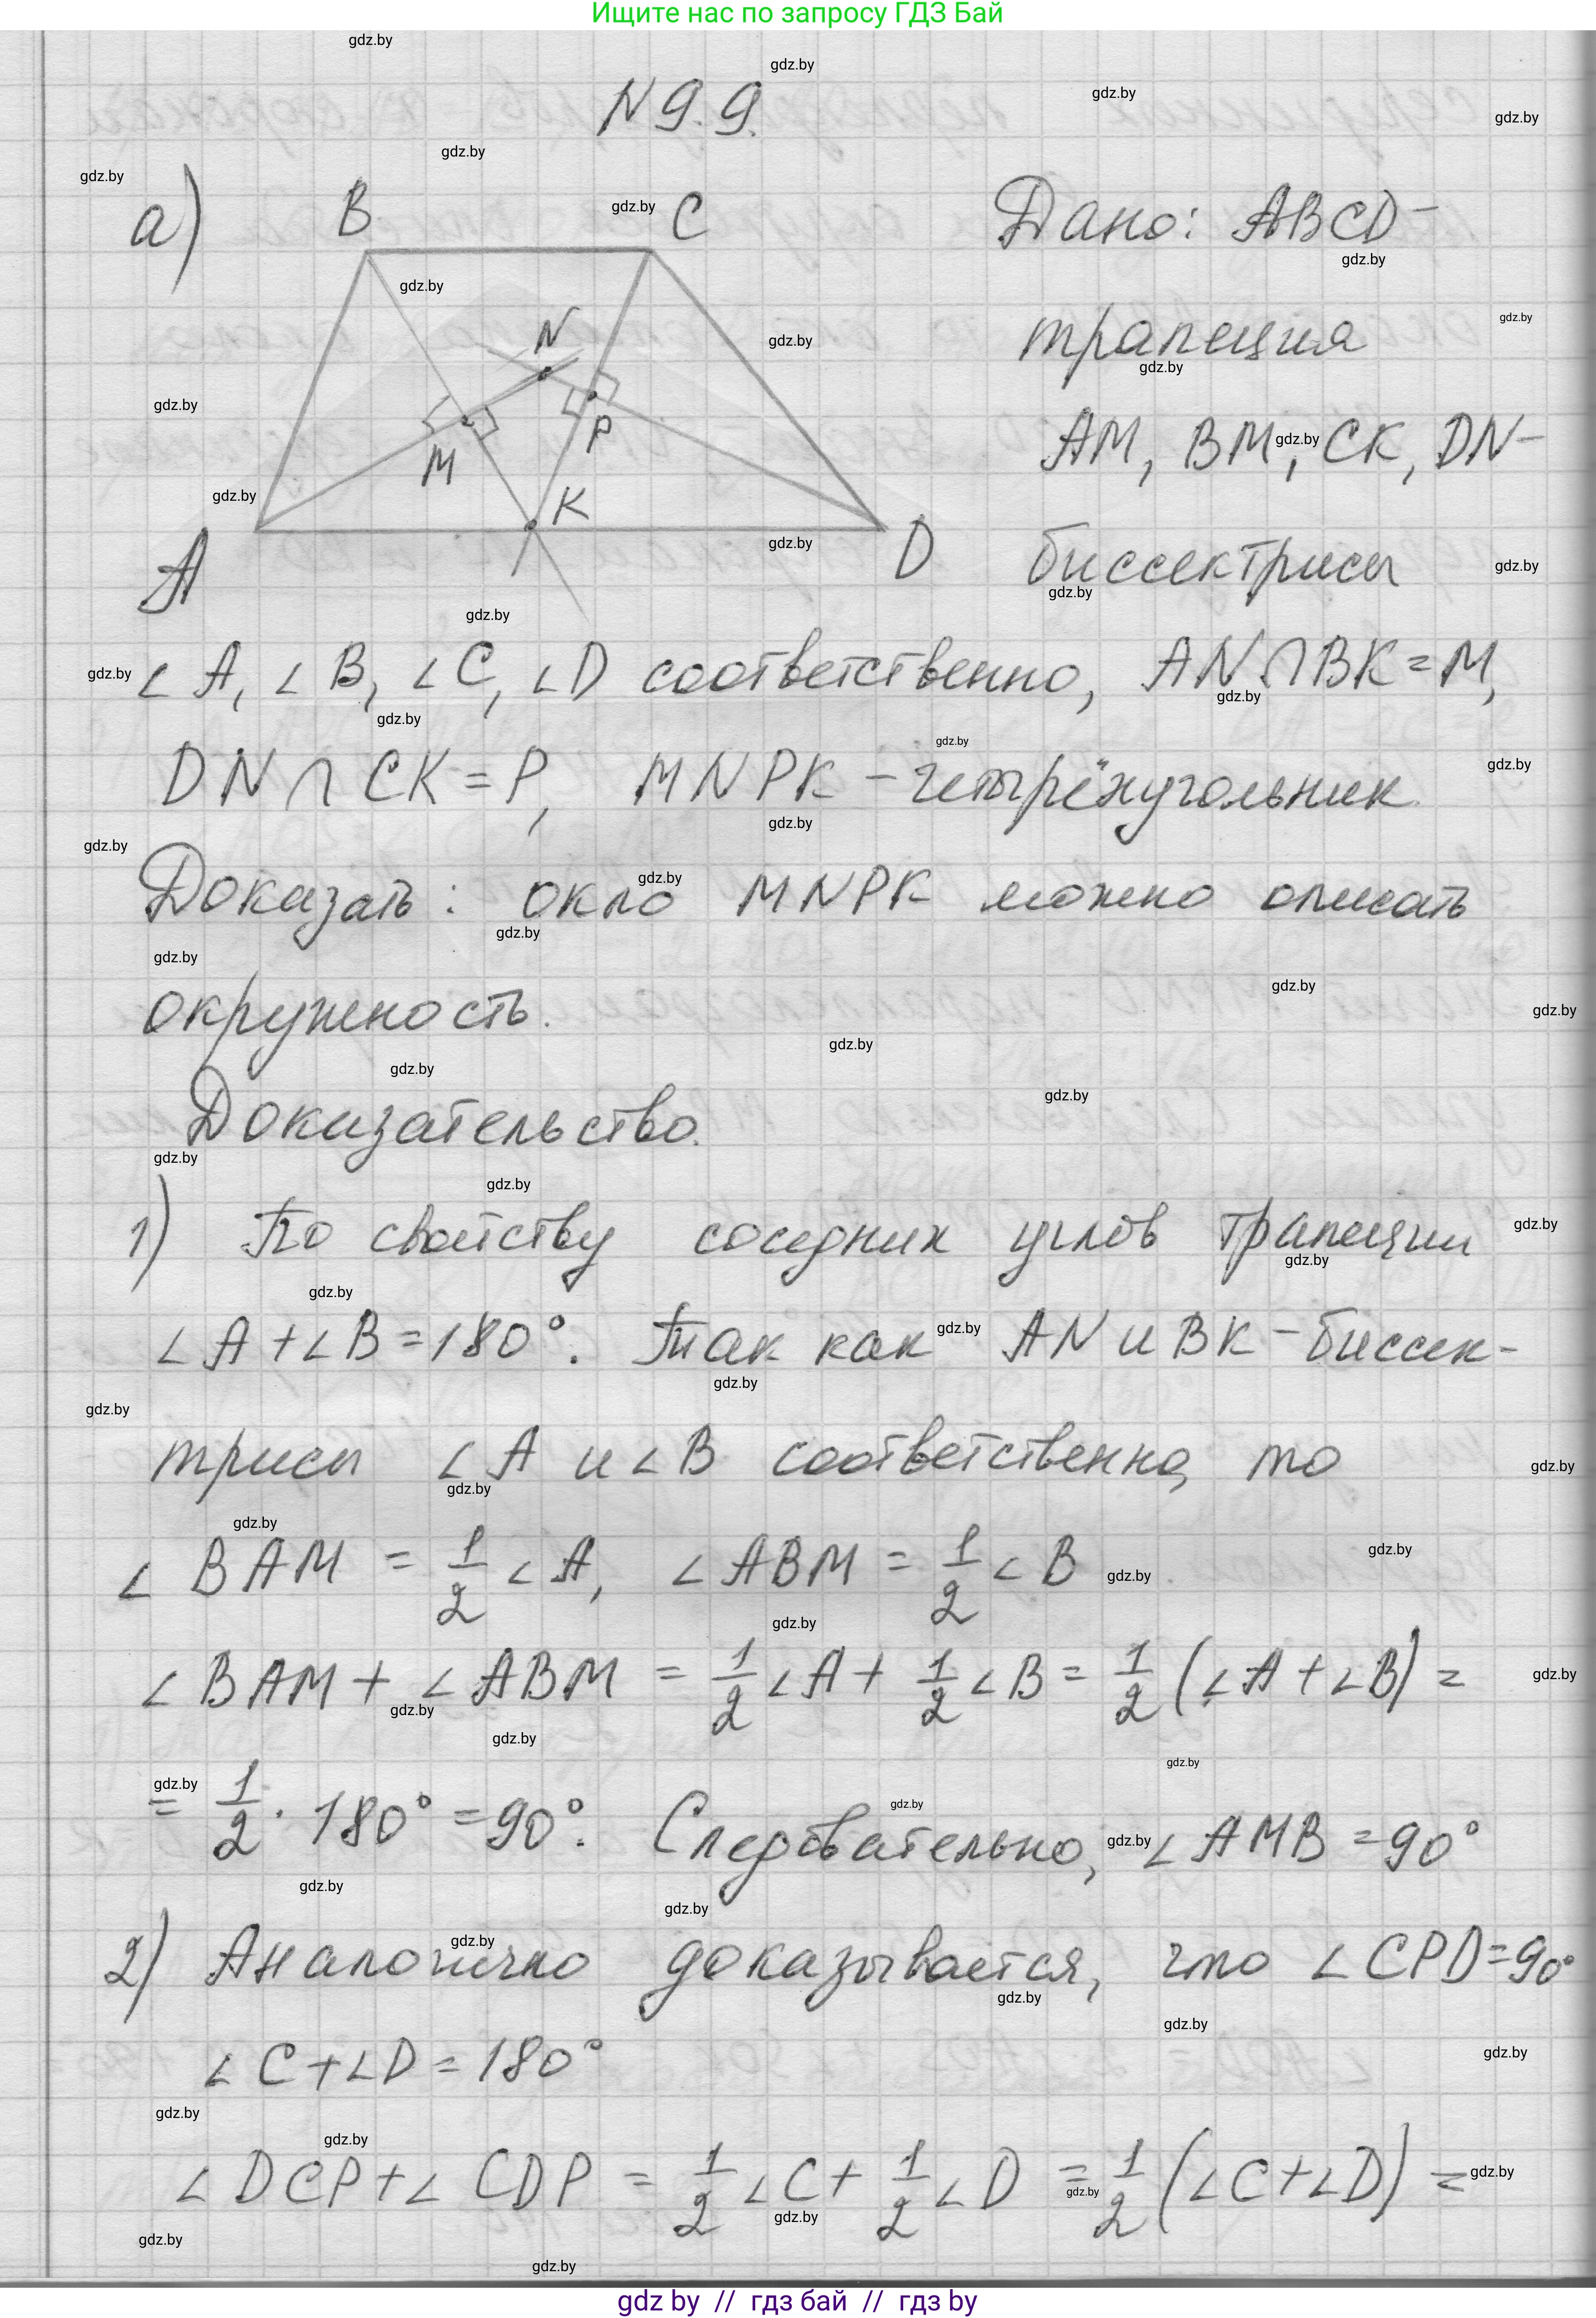 Ищите нас по запросу ГДЗ Бай
N 9.9.
а)
B C
N
M P
K
A D
Дано: ABCD –
трапеция
AM, BM, CK, DN –
биссектрисы
∠A, ∠B, ∠C, ∠D соответственно, AN ∩ BK = M,
DN ∩ CK = P, MNPK – четырёхугольник.
Доказать: около MNPK можно описать
окружность.
Доказательство.
1) По свойству соседних углов трапеции
∠A + ∠B = 180°. Так как AN и BK – биссек-
трисы ∠A и ∠B соответственно, то
∠BAM = 1/2 ∠A, ∠ABM = 1/2 ∠B
∠BAM + ∠ABM = 1/2 ∠A + 1/2 ∠B = 1/2 (∠A + ∠B) =
= 1/2 · 180° = 90°. Следовательно, ∠AMB = 90°
2) Аналогично доказывается, что ∠CPD = 90°
∠C + ∠D = 180°
∠DCP + ∠CDP = 1/2 ∠C + 1/2 ∠D = 1/2 (∠C + ∠D) =
gdz by // гдз бай // гдз by